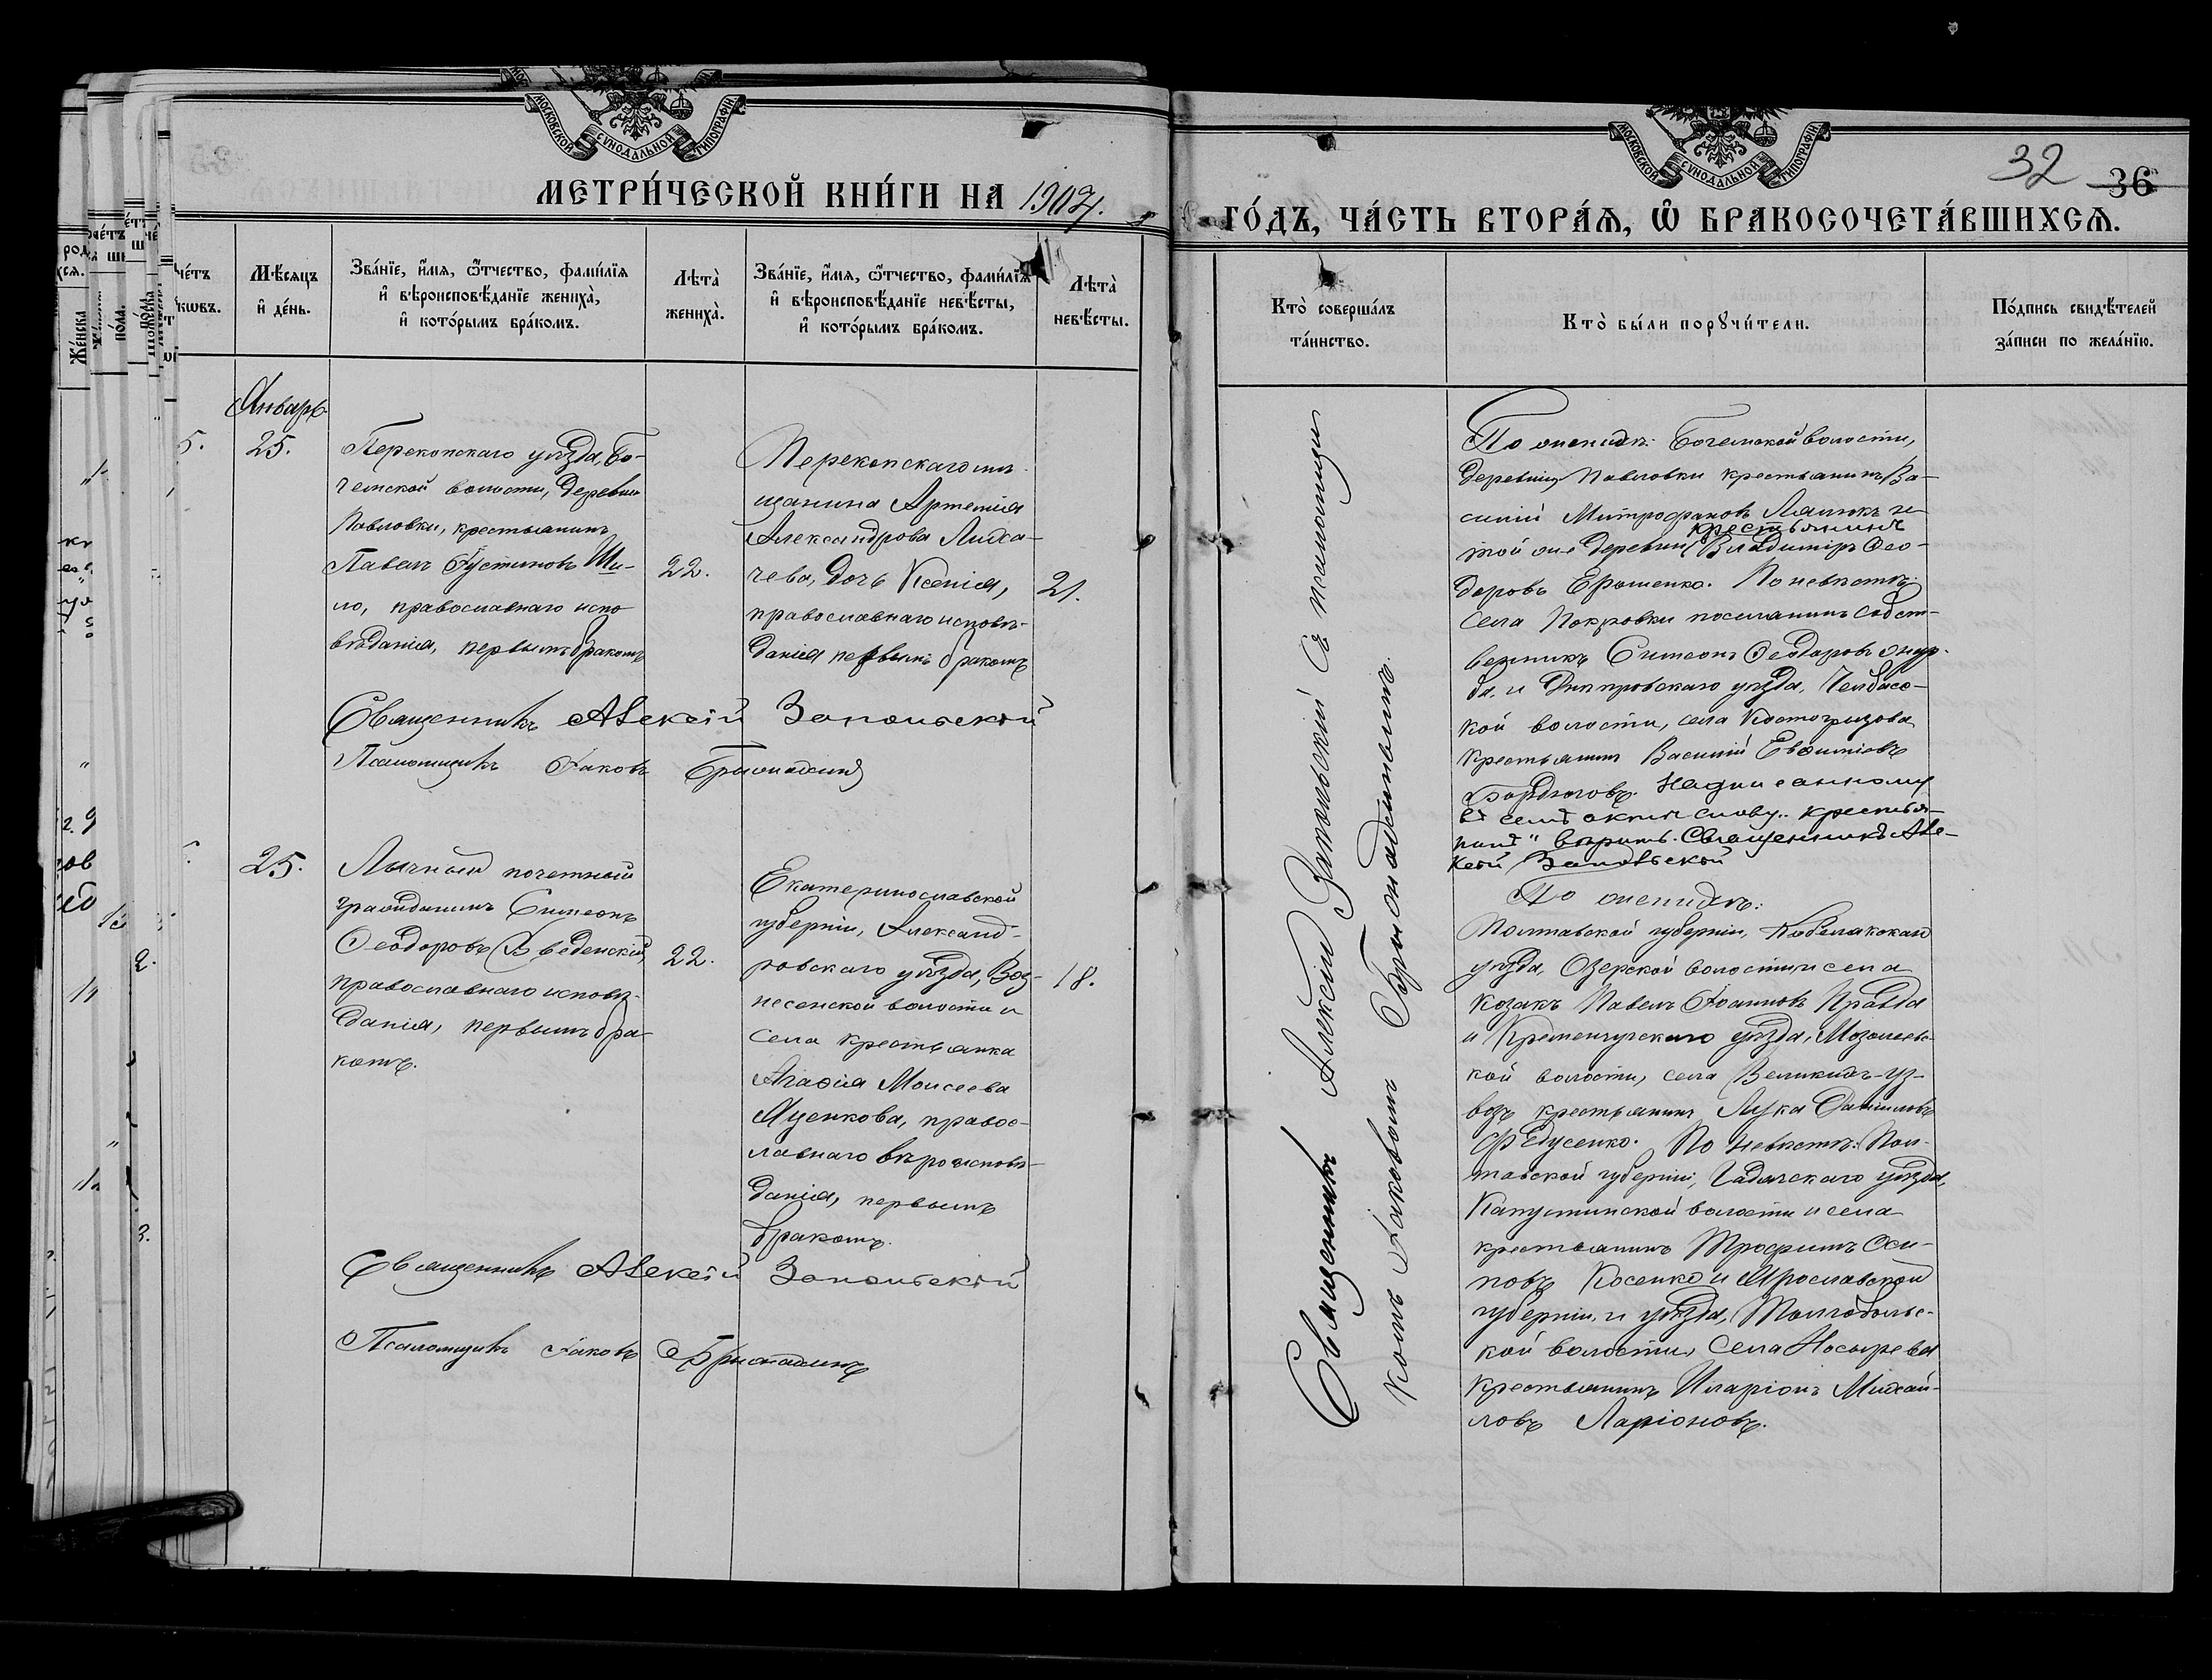 МОСКОВСКОЙ СѴНОДАЛЬНОЙ ТИПОГРАФІИ
МЕТРИ́ЧЕСКОЙ КНИ́ГИ НА
МѢ́сяцъ и҆ де́нь.
Зва́нїе, и҆́мя, ѻ҆́тчество, фами́лїя и҆ вѣроисповѣ́данїе жениха̀, и҆ кото́рымъ бра́комъ.
Лѣта̀ жениха̀.
Зва́нїе, и҆́мя, ѻ҆́тчество, фами́лїя и҆ вѣроисповѣ́данїе невѣ́сты, и҆ кото́рымъ бра́комъ.
Лѣта̀ невѣ́сты.
Январь
5.
25.
Перекопскаго уѣзда, Бо-
гемской волости, деревни
Павловки, крестьянинъ
Павелъ Іустиновъ Ши-
ло, православнаго испо
вѣданія, первымъ бракомъ
22.
Перекопскаго мѣ-
щанина Артемія
Александрова Лиха-
чева, дочь Ксенія,
православнаго исповѣ-
данія первымъ бракомъ
21.
Священникъ Алексій Запольскій
Псаломщикъ Іаковъ
25.
Личный почетный
гражданинъ Симеонъ
Ѳеодоровъ Введенскій,
православнаго исповѣ-
данія, первымъ бра-
комъ.
22.
Екатеринославской
губерніи, Александ-
ровскаго уѣзда, Воз-
несенской волости и
села крестьянка
Агаѳія Моисеева
Яценкова, правос-
лавнаго вѣроисповѣ-
данія, первымъ
бракомъ.
18.
Священникъ Алексій Запольскій
Псаломщикъ Іаковъ
МОСКОВСКОЙ СѴНОДАЛЬНОЙ ТИПОГРАФІИ
32 36
ГО́ДЪ, ЧА́СТЬ ВТОРА́Я, Ѡ҆ БРАКОСОЧЕТА́ВШИХСЯ.
Кто̀ соверша́лъ та́инство.
Кто̀ бы́ли порꙋчи́тели.
По́дпись свидѣ́телей за́писи по жела́нїю.
Священникъ Алексій Запольскій съ псаломщи
комъ Іаковомъ
По женихѣ: Богемской волости,
деревни Павловки крестьянинъ Ва-
силій Митрофановъ и
крестьянинъ
той же деревни Владиміръ Ѳео-
доровъ Ерошенко. По невѣстѣ:
села Покровки поселянинъ собст-
венникъ Симеонъ Ѳеодоровъ
и Днѣпровскаго уѣзда, Челбасс-
кой волости, села Костогрызова
крестьянинъ Василій Евѳиміовъ
Надписанному
въ семъ актѣ слову „крестья-
нинъ" вѣрить. Священникъ Але-
ксій Запольскій
По женихѣ:
Полтавской губерніи, Кобелякскаго
уѣзда, Озерской волости и села
козакъ Павелъ Іоанновъ Правда
и Кременчугскаго уѣзда,
кой волости, села
крестьянинъ Лука Даніиловъ
Федусенко. По невѣстѣ: Пол-
тавской губерніи, Гадячскаго уѣзда,
Капустинской волости и села
крестьянинъ Трофимъ Оси-
повъ Косенко и Ярославской
губерніи и уѣзда,
кой волости, села
крестьянинъ Иларіонъ Михай-
ловъ Ларіоновъ.